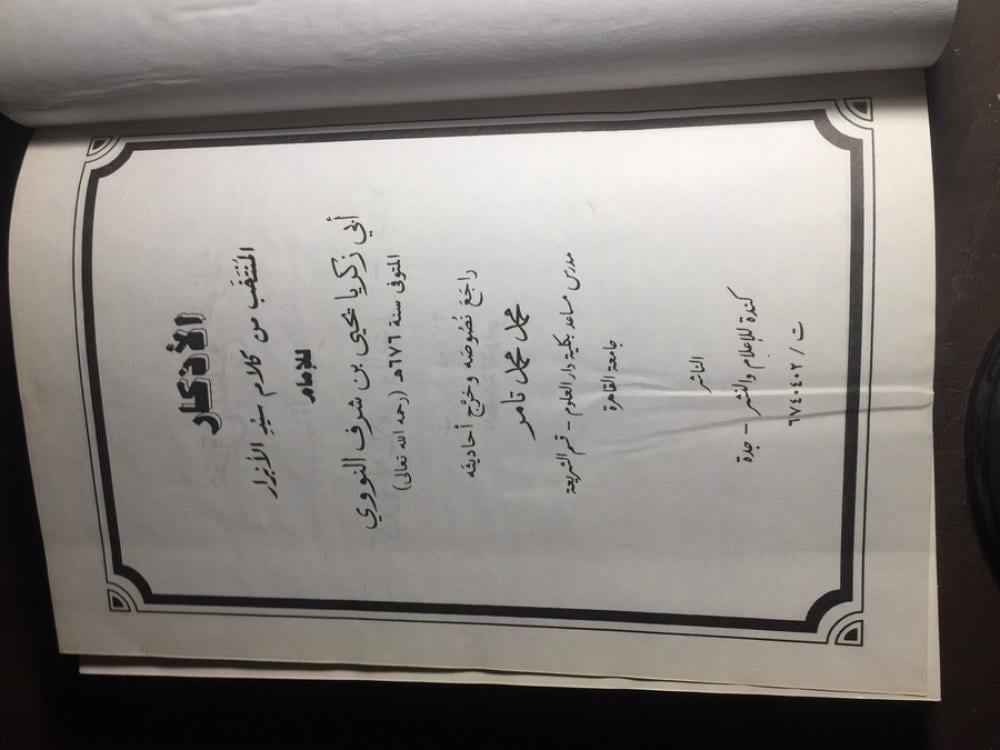 الأذكار
المُنتَخَب من كلام سيّدِ الأبرار
للإمام
أبي زكريا يحيى بن شرف النووي
المتوفى سنة ٦٧٦هـ (رحمه الله تعالى)
راجَعَ نصُوصَه وخرَّج أحاديثه
محمد محمد تامر
مدرس مساعد بكلية دار العلوم - قسم الشريعة
جامعة القاهرة
الناشر
كندة للإعلام والنشر - جدة
ت / ٦٧٤٠٤٠٢